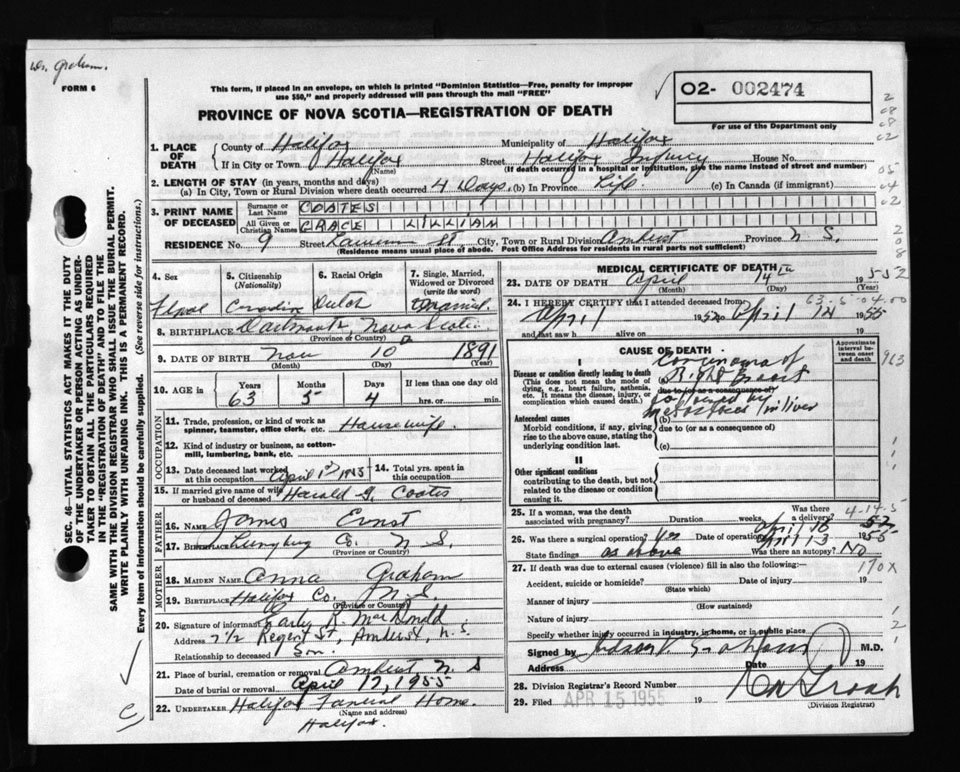 Dr. Graham.
FORM 6
This form, if placed in an envelope, on which is printed "Dominion Statistics—Free, penalty for improper
use $50," and properly addressed will pass through the mail "FREE"
PROVINCE OF NOVA SCOTIA—REGISTRATION OF DEATH
O2- 002474
For use of the Department only
1. PLACE OF DEATH
County of Halifax Municipality of Halifax
If in City or Town Halifax Street Halifax Infirmary House No.
(Name) (If death occurred in a hospital or institution, give the name instead of street and number)
2. LENGTH OF STAY (in years, months and days)
(a) In City, Town or Rural Division where death occurred 4 Days. (b) In Province Life (c) In Canada (if immigrant)
3. PRINT NAME OF DECEASED
Surname or Last Name COATES
All Given or Christian Names GRACE LILLIAN
RESIDENCE No. 9 Street St City, Town or Rural Division Amherst Province N.S.
(Residence means usual place of abode. Post Office Address for residents in rural parts not sufficient)
4. Sex
5. Citizenship (Nationality) Canadian
6. Racial Origin Dutch
7. Single, Married, Widowed or Divorced (write the word) Married.
8. BIRTHPLACE Dartmouth, Nova Scotia
(Province or Country)
9. DATE OF BIRTH Nov 10 1891
(Month) (Day) (Year)
10. AGE in Years 63 Months 5 Days 4 If less than one day old hrs. or min.
OCCUPATION
11. Trade, profession, or kind of work as spinner, teamster, office clerk, etc. Housewife.
12. Kind of industry or business, as cotton-mill, lumbering, bank, etc.
13. Date deceased last worked at this occupation April 1st 1955
14. Total yrs. spent in this occupation
15. If married give name of wife or husband of deceased Harold G. Coates
FATHER
16. NAME James Ernst
17. BIRTHPLACE Lunenburg Co. N.S.
(Province or Country)
MOTHER
18. MAIDEN NAME Anna Graham
19. BIRTHPLACE Halifax Co. N.S.
(Province or Country)
20. Signature of informant MacDonald
Address 7 1/2 Regent St, Amherst, N.S.
Relationship to deceased Son.
21. Place of burial, cremation or removal Amherst N S
Date of burial or removal April 17, 1955
22. UNDERTAKER Halifax Funeral Home.
(Name and address)
Halifax.
MEDICAL CERTIFICATE OF DEATH
23. DATE OF DEATH April 14th 1955
(Month) (Day)
24. I HEREBY CERTIFY that I attended deceased from
April 19 April 14 1955
and last saw h alive on 19
CAUSE OF DEATH
Approximate interval between onset and death
I
Disease or condition directly leading to death
(This does not mean the mode of dying, e.g., heart failure, asthenia, etc. It means the disease, injury, or complication which caused death.)
Carcinoma of
Right breast
due to (or as a consequence of)
followed by
metastases in liver
Antecedent causes
Morbid conditions, if any, giving rise to the above cause, stating the underlying condition last.
(b)
due to (or as a consequence of)
(c)
II
Other significant conditions
contributing to the death, but not related to the disease or condition causing it.
25. If a woman, was the death associated with pregnancy? Duration weeks. Was there a delivery?
26. Was there a surgical operation? Yes Date of operation April 13 1955
State findings as above Was there an autopsy? No
27. If death was due to external causes (violence) fill in also the following:—
170X
Accident, suicide or homicide? Date of injury 19
(State which)
Manner of injury
(How sustained)
Nature of injury
Specify whether injury occurred in industry, in home, or in public place
Signed by Judson V. Graham M.D.
Address Date 19
28. Division Registrar's Record Number
29. Filed APR 15 1955 19
(Division Registrar)
SEC. 46—VITAL STATISTICS ACT MAKES IT THE DUTY
OF THE UNDERTAKER OR PERSON ACTING AS UNDER-
TAKER TO OBTAIN ALL THE PARTICULARS REQUIRED
IN THE "REGISTRATION OF DEATH" AND TO FILE THE
SAME WITH THE DIVISION REGISTRAR WHO SHALL ISSUE THE BURIAL PERMIT.
WRITE PLAINLY WITH UNFADING INK. THIS IS A PERMANENT RECORD.
Every item of information should be carefully supplied. (See reverse side for instructions.)